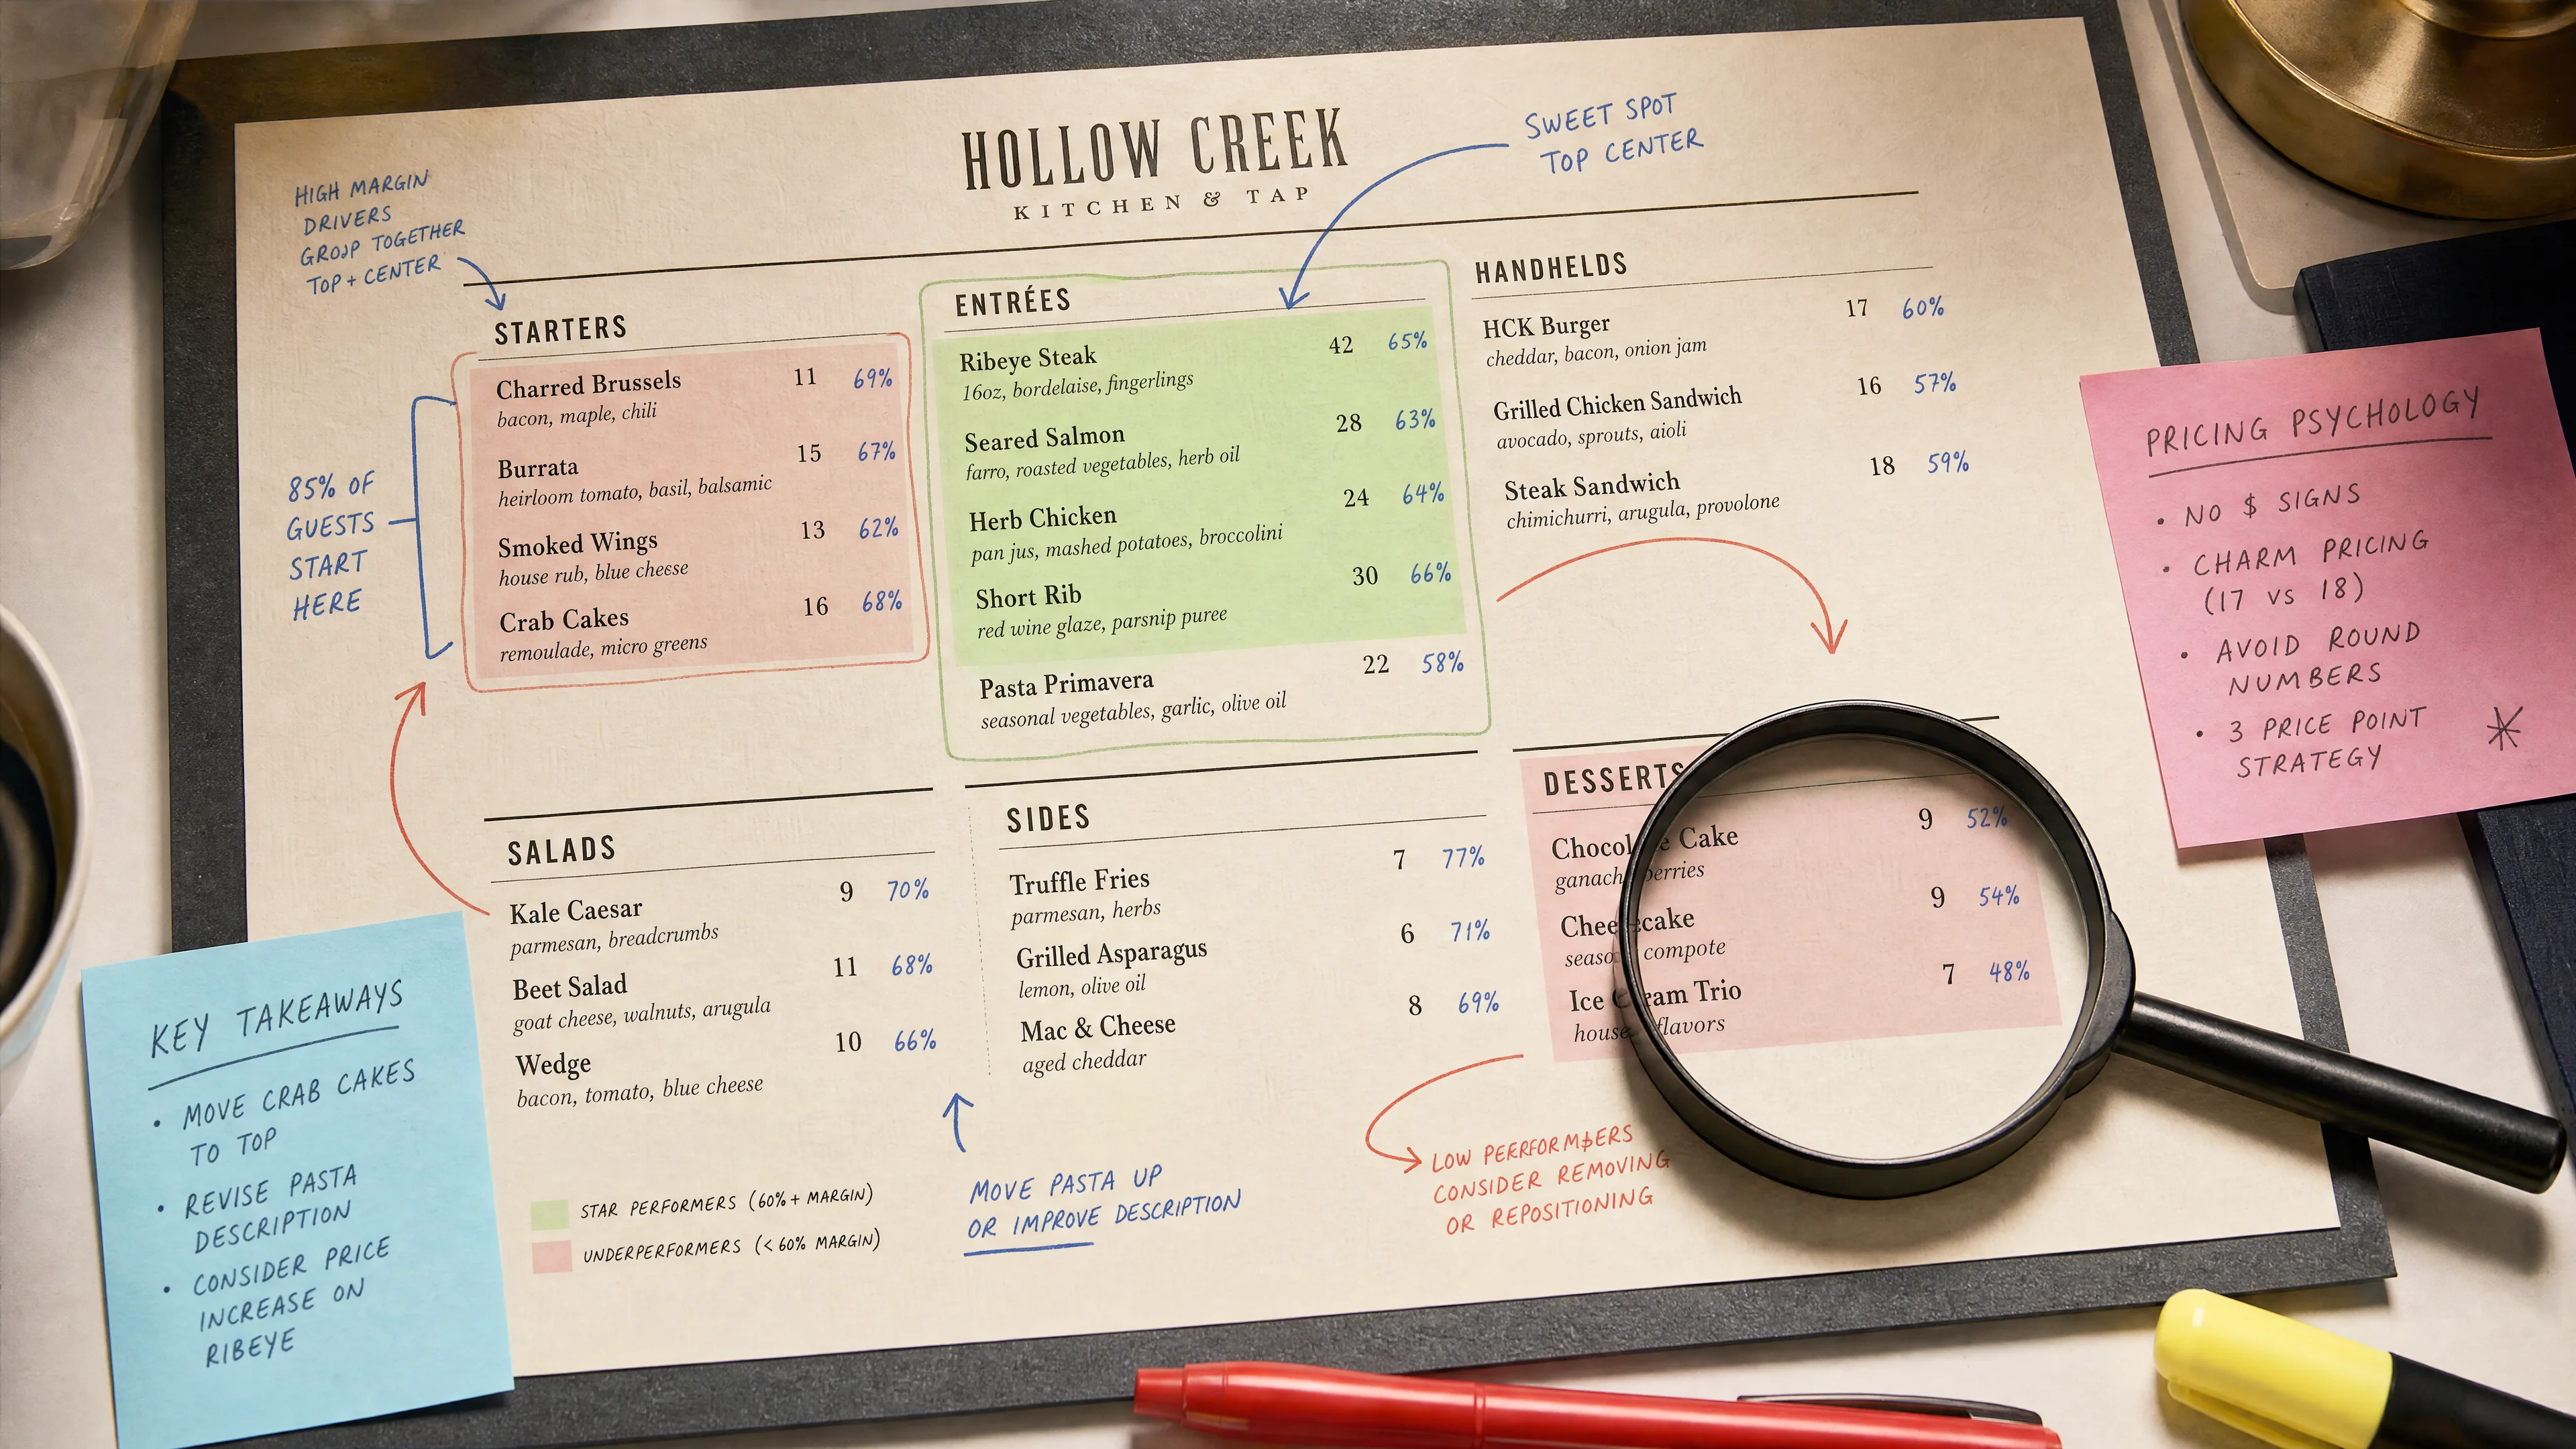 HOLLOW CREEK
KITCHEN & TAP
HIGH MARGIN
DRIVERS
GROUP TOGETHER
TOP + CENTER
SWEET SPOT
TOP CENTER
85% OF
GUESTS
START
HERE
STARTERS
Charred Brussels 11 69%
bacon, maple, chili
Burrata 15 67%
heirloom tomato, basil, balsamic
Smoked Wings 13 62%
house rub, blue cheese
Crab Cakes 16 68%
remoulade, micro greens
ENTRÉES
Ribeye Steak 42 65%
16oz, bordelaise, fingerlings
Seared Salmon 28 63%
farro, roasted vegetables, herb oil
Herb Chicken 24 64%
pan jus, mashed potatoes, broccolini
Short Rib 30 66%
red wine glaze, parsnip puree
Pasta Primavera 22 58%
seasonal vegetables, garlic, olive oil
HANDHELDS
HCK Burger 17 60%
cheddar, bacon, onion jam
Grilled Chicken Sandwich 16 57%
avocado, sprouts, aioli
Steak Sandwich 18 59%
chimichurri, arugula, provolone
SALADS
Kale Caesar 9 70%
parmesan, breadcrumbs
Beet Salad 11 68%
goat cheese, walnuts, arugula
Wedge 10 66%
bacon, tomato, blue cheese
SIDES
Truffle Fries 7 77%
parmesan, herbs
Grilled Asparagus 6 71%
lemon, olive oil
Mac & Cheese 8 69%
aged cheddar
DESSERTS
Cake 9 52%
berries
9 54%
compote
Ice Trio 7 48%
house flavors
STAR PERFORMERS (60% + MARGIN)
UNDERPERFORMERS (< 60% MARGIN)
MOVE PASTA UP
OR IMPROVE DESCRIPTION
LOW PERRFORM$ERS
CONSIDER REMOVING
OR REPOSITIONING
KEY TAKEAWAYS
• MOVE CRAB CAKES
TO TOP
• REVISE PASTA
DESCRIPTION
• CONSIDER PRICE
INCREASE ON
RIBEYE
PRICING PSYCHOLOGY
• NO $ SIGNS
• CHARM PRICING
(17 VS 18)
• AVOID ROUND
NUMBERS
• 3 PRICE POINT
STRATEGY